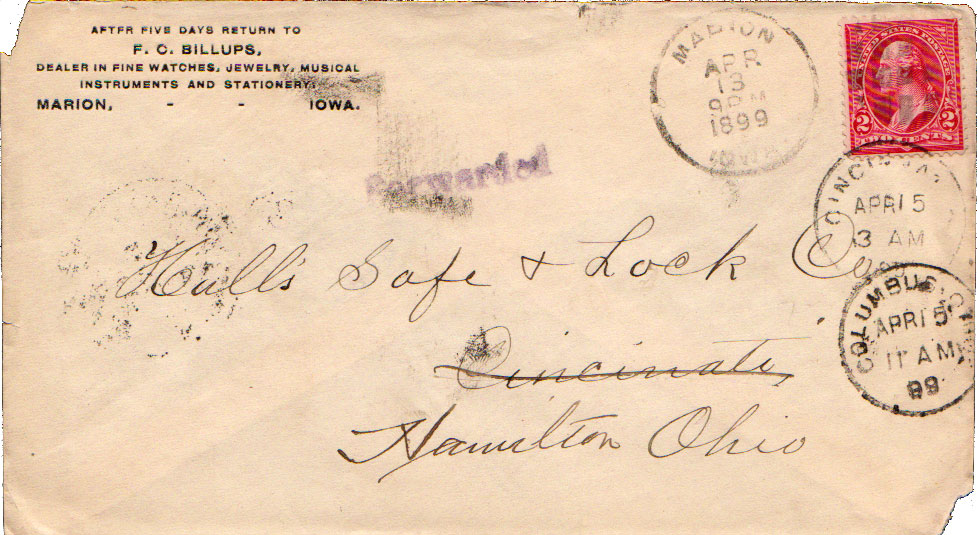 AFTER FIVE DAYS RETURN TO
F. C. BILLUPS,
DEALER IN FINE WATCHES, JEWELRY, MUSICAL
INSTRUMENTS AND STATIONERY,
MARION, - - IOWA.
MARION
APR
13
9 PM
1899
IOWA
UNITED STATES POSTAGE
2 2
TWO CENTS
Forwarded
CINCINNATI
APR 15
3 AM
Hall's Safe & Lock Co
COLUMBUS, O.
APR 15
11 AM
99
Cincinati,
Hamilton Ohio